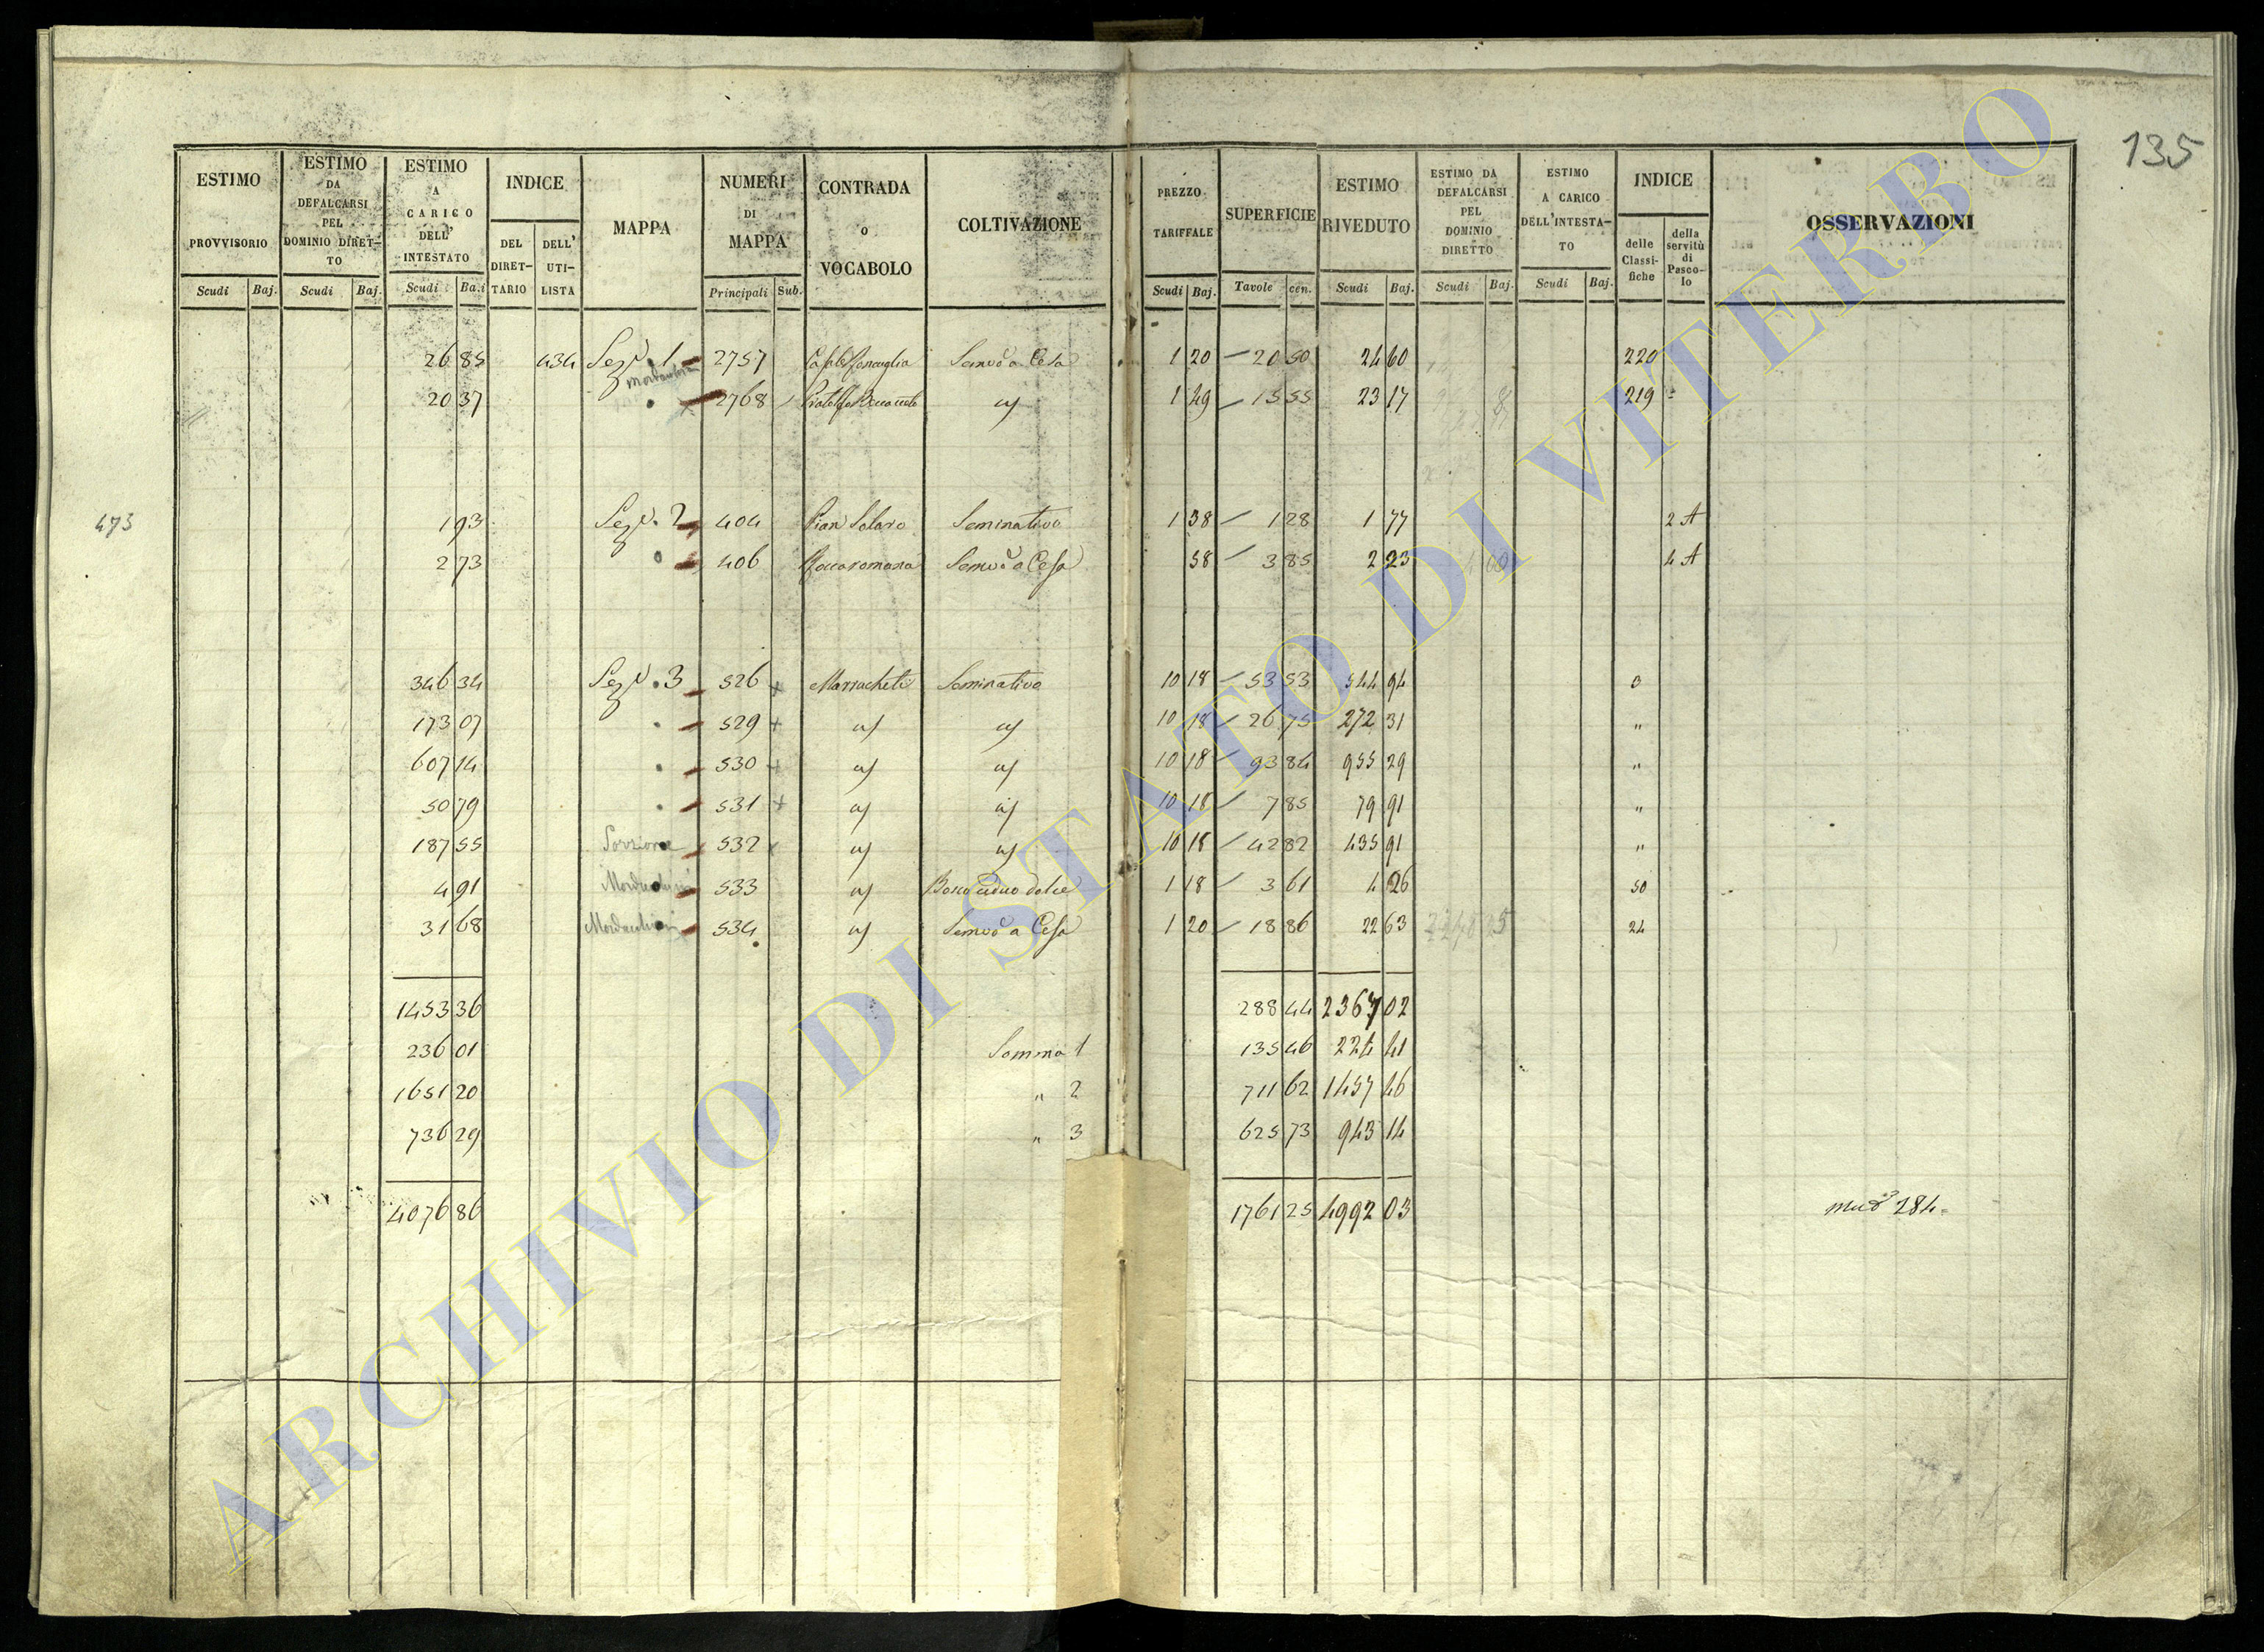 135
ESTIMO PROVVISORIO Scudi Baj.
ESTIMO DA DEFALCARSI PEL DOMINIO DIRETTO Scudi Baj.
ESTIMO A CARICO DELL' INTESTATO Scudi Baj.
INDICE DEL DIRETTARIO DELL' UTILISTA
MAPPA
NUMERI DI MAPPA Principali Sub.
CONTRADA O VOCABOLO
COLTIVAZIONE
PREZZO TARIFFALE Scudi Baj.
SUPERFICIE Tavole cen.
ESTIMO RIVEDUTO Scudi Baj.
ESTIMO DA DEFALCARSI PEL DOMINIO DIRETTO Scudi Baj.
ESTIMO A CARICO DELL'INTESTATO Scudi Baj.
INDICE delle Classifiche della servitù di Pascolo
OSSERVAZIONI
26 85 434 Sez. 1 2757 Semvo a Cesa 1 20 20 50 24 60 220
20 37 2768 1 49 15 55 23 17 219
473 1 93 Sez. 2 404 Pian Solaro Seminativo 1 38 1 28 1 77 2 A
2 73 406 Roccaromana Semvo a Cesa 58 3 85 2 23 4 A
346 34 Sez. 3 526 + Marracheto Seminativo 10 18 53 53 544 94 0
173 07 529 + 10 18 26 75 272 31 "
607 14 530 + 10 18 93 84 955 29 "
50 79 531 + 10 18 7 85 79 91 "
187 55 Porzione 532 10 18 42 82 435 91 "
4 91 533 Bosco ceduo dolce 1 18 3 61 4 26 50
31 68 534 Semvo a Cesa 1 20 18 86 22 63 24
1453 36 288 44 2367 02
236 01 Somma 1 135 46 224 41
1651 20 " 2 711 62 1457 46
736 29 " 3 625 73 943 14
4076 86 1761 25 4992 03 284
ARCHIVIO DI STATO DI VITERBO